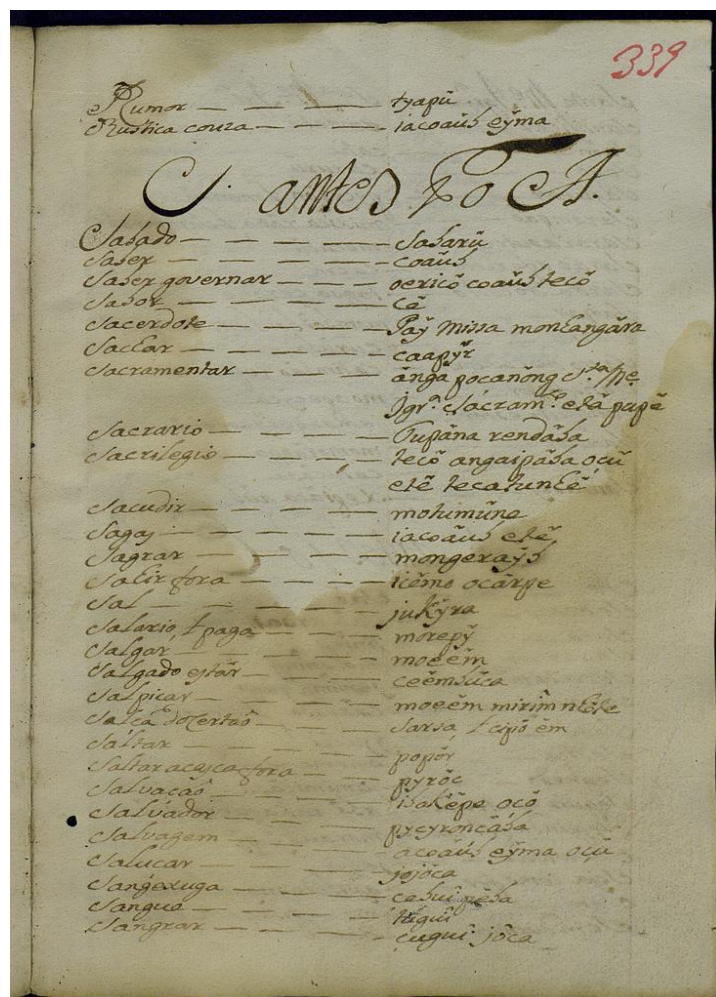 339
Rumor — — — — tyapũ
Rustica couza — — — iacoaũb eỹma
S. antes do A.
Sabado — — — — Sabarũ
Saber — — — — coaũb
Saber governar — — — oericõ coaũb tecõ
Sabor — — — — cê
Sacerdote — — — — Paỹ Missa monhangára
Sachar — — — — caapỹr
Sacramentar — — — —
Sacrario — — — — Tupãna rendába
Sacrilegio — — — — tecõ angaipába ocũ
etẽ
Sacudir — — — — motumũne
Sagaz — — — — iacoaũb etẽ
Sagrar — — — — mongeraỹb
Sahir fora — — — icẽmo ocãrpe
Sal — — — — jukỹra
Salario, l paga — — — morepỹ
Salgar — — — — moeẽm
Salgado estár — — — ceẽmbũca
Salpicar — — — — moeẽm mirĩm nhõte
Salça do Certaõ — — — Sarsa, l cipõ ẽm
Saltar — — — — popõr
Saltar a casca fora — — pyrõc
Salvaçaõ — — — —
Salvador — — — — pycyronçába
Salvagem — — — — acoaũb eỹma ocũ
Saluçar — — — — jojóca
Sangexuga — — — —
Sangue — — — — tuguî
Sangrar — — — — çuguî jôca